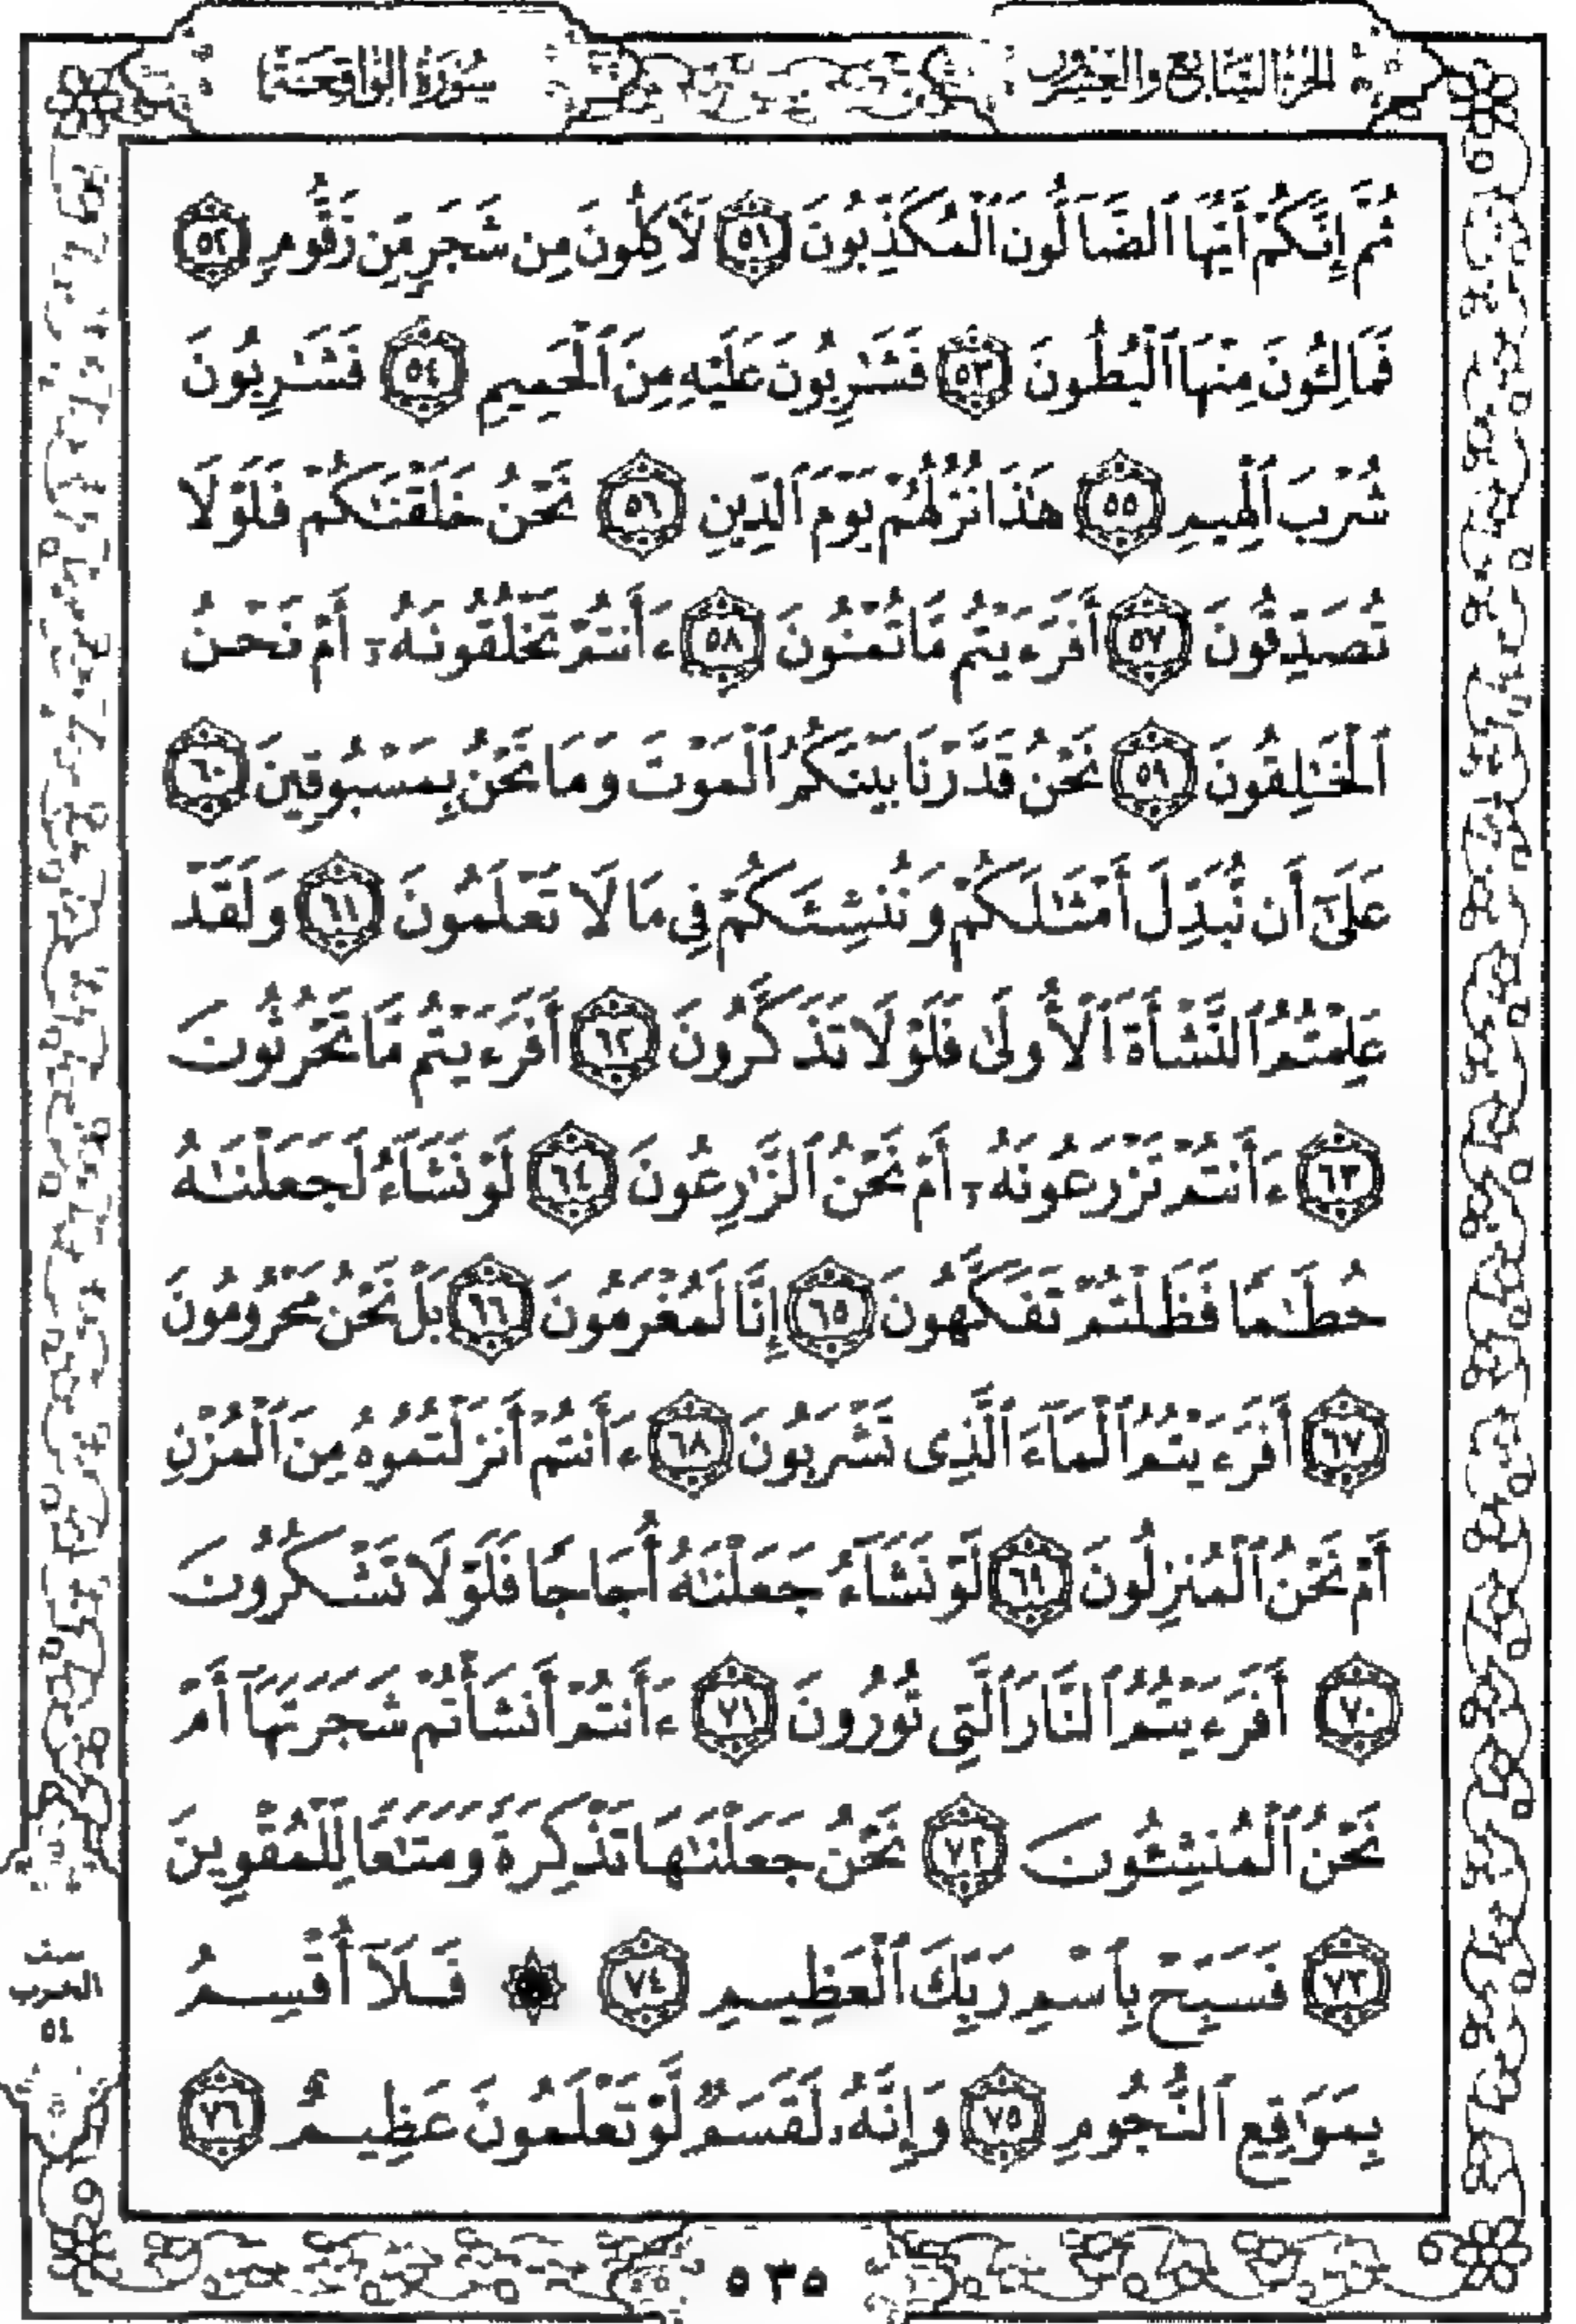 الجزء السابع والعشرون
سورة الواقعة
ثُمَّ إِنَّكُمْ أَيُّهَا ٱلضَّآلُّونَ ٱلْمُكَذِّبُونَ ٥١ لَأٓكِلُونَ مِن شَجَرٍ مِّن زَقُّومٍ ٥٢
فَمَالِـُٔونَ مِنْهَا ٱلْبُطُونَ ٥٣ فَشَـٰرِبُونَ عَلَيْهِ مِنَ ٱلْحَمِيمِ ٥٤ فَشَـٰرِبُونَ
شُرْبَ ٱلْهِيمِ ٥٥ هَـٰذَا نُزُلُهُمْ يَوْمَ ٱلدِّينِ ٥٦ نَحْنُ خَلَقْنَـٰكُمْ فَلَوْلَا
تُصَدِّقُونَ ٥٧ أَفَرَءَيْتُم مَّا تُمْنُونَ ٥٨ ءَأَنتُمْ تَخْلُقُونَهُۥٓ أَمْ نَحْنُ
ٱلْخَـٰلِقُونَ ٥٩ نَحْنُ قَدَّرْنَا بَيْنَكُمُ ٱلْمَوْتَ وَمَا نَحْنُ بِمَسْبُوقِينَ ٦٠
عَلَىٰٓ أَن نُّبَدِّلَ أَمْثَـٰلَكُمْ وَنُنشِئَكُمْ فِى مَا لَا تَعْلَمُونَ ٦١ وَلَقَدْ
عَلِمْتُمُ ٱلنَّشْأَةَ ٱلْأُولَىٰ فَلَوْلَا تَذَكَّرُونَ ٦٢ أَفَرَءَيْتُم مَّا تَحْرُثُونَ
٦٣ ءَأَنتُمْ تَزْرَعُونَهُۥٓ أَمْ نَحْنُ ٱلزَّٰرِعُونَ ٦٤ لَوْ نَشَآءُ لَجَعَلْنَـٰهُ
حُطَـٰمًا فَظَلْتُمْ تَفَكَّهُونَ ٦٥ إِنَّا لَمُغْرَمُونَ ٦٦ بَلْ نَحْنُ مَحْرُومُونَ
٦٧ أَفَرَءَيْتُمُ ٱلْمَآءَ ٱلَّذِى تَشْرَبُونَ ٦٨ ءَأَنتُمْ أَنزَلْتُمُوهُ مِنَ ٱلْمُزْنِ
أَمْ نَحْنُ ٱلْمُنزِلُونَ ٦٩ لَوْ نَشَآءُ جَعَلْنَـٰهُ أُجَاجًا فَلَوْلَا تَشْكُرُونَ
٧٠ أَفَرَءَيْتُمُ ٱلنَّارَ ٱلَّتِى تُورُونَ ٧١ ءَأَنتُمْ أَنشَأْتُمْ شَجَرَتَهَآ أَمْ
نَحْنُ ٱلْمُنشِـُٔونَ ٧٢ نَحْنُ جَعَلْنَـٰهَا تَذْكِرَةً وَمَتَـٰعًا لِّلْمُقْوِينَ
٧٣ فَسَبِّحْ بِٱسْمِ رَبِّكَ ٱلْعَظِيمِ ٧٤ ۞ فَلَآ أُقْسِمُ
بِمَوَٰقِعِ ٱلنُّجُومِ ٧٥ وَإِنَّهُۥ لَقَسَمٌ لَّوْ تَعْلَمُونَ عَظِيمٌ ٧٦
الحزب
٥٤
٥٣٥